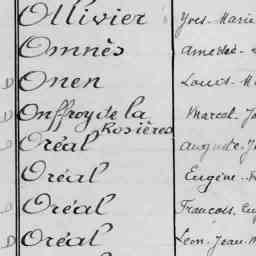 Ollivier Yves-Marie
Omnès Amédée-
Onen Louis-M
Onffroy de la Rosières Marcel-J
Oréal Auguste-J
Oréal Eugène-
Oréal François, Eug
Oréal Léon-Jean-M